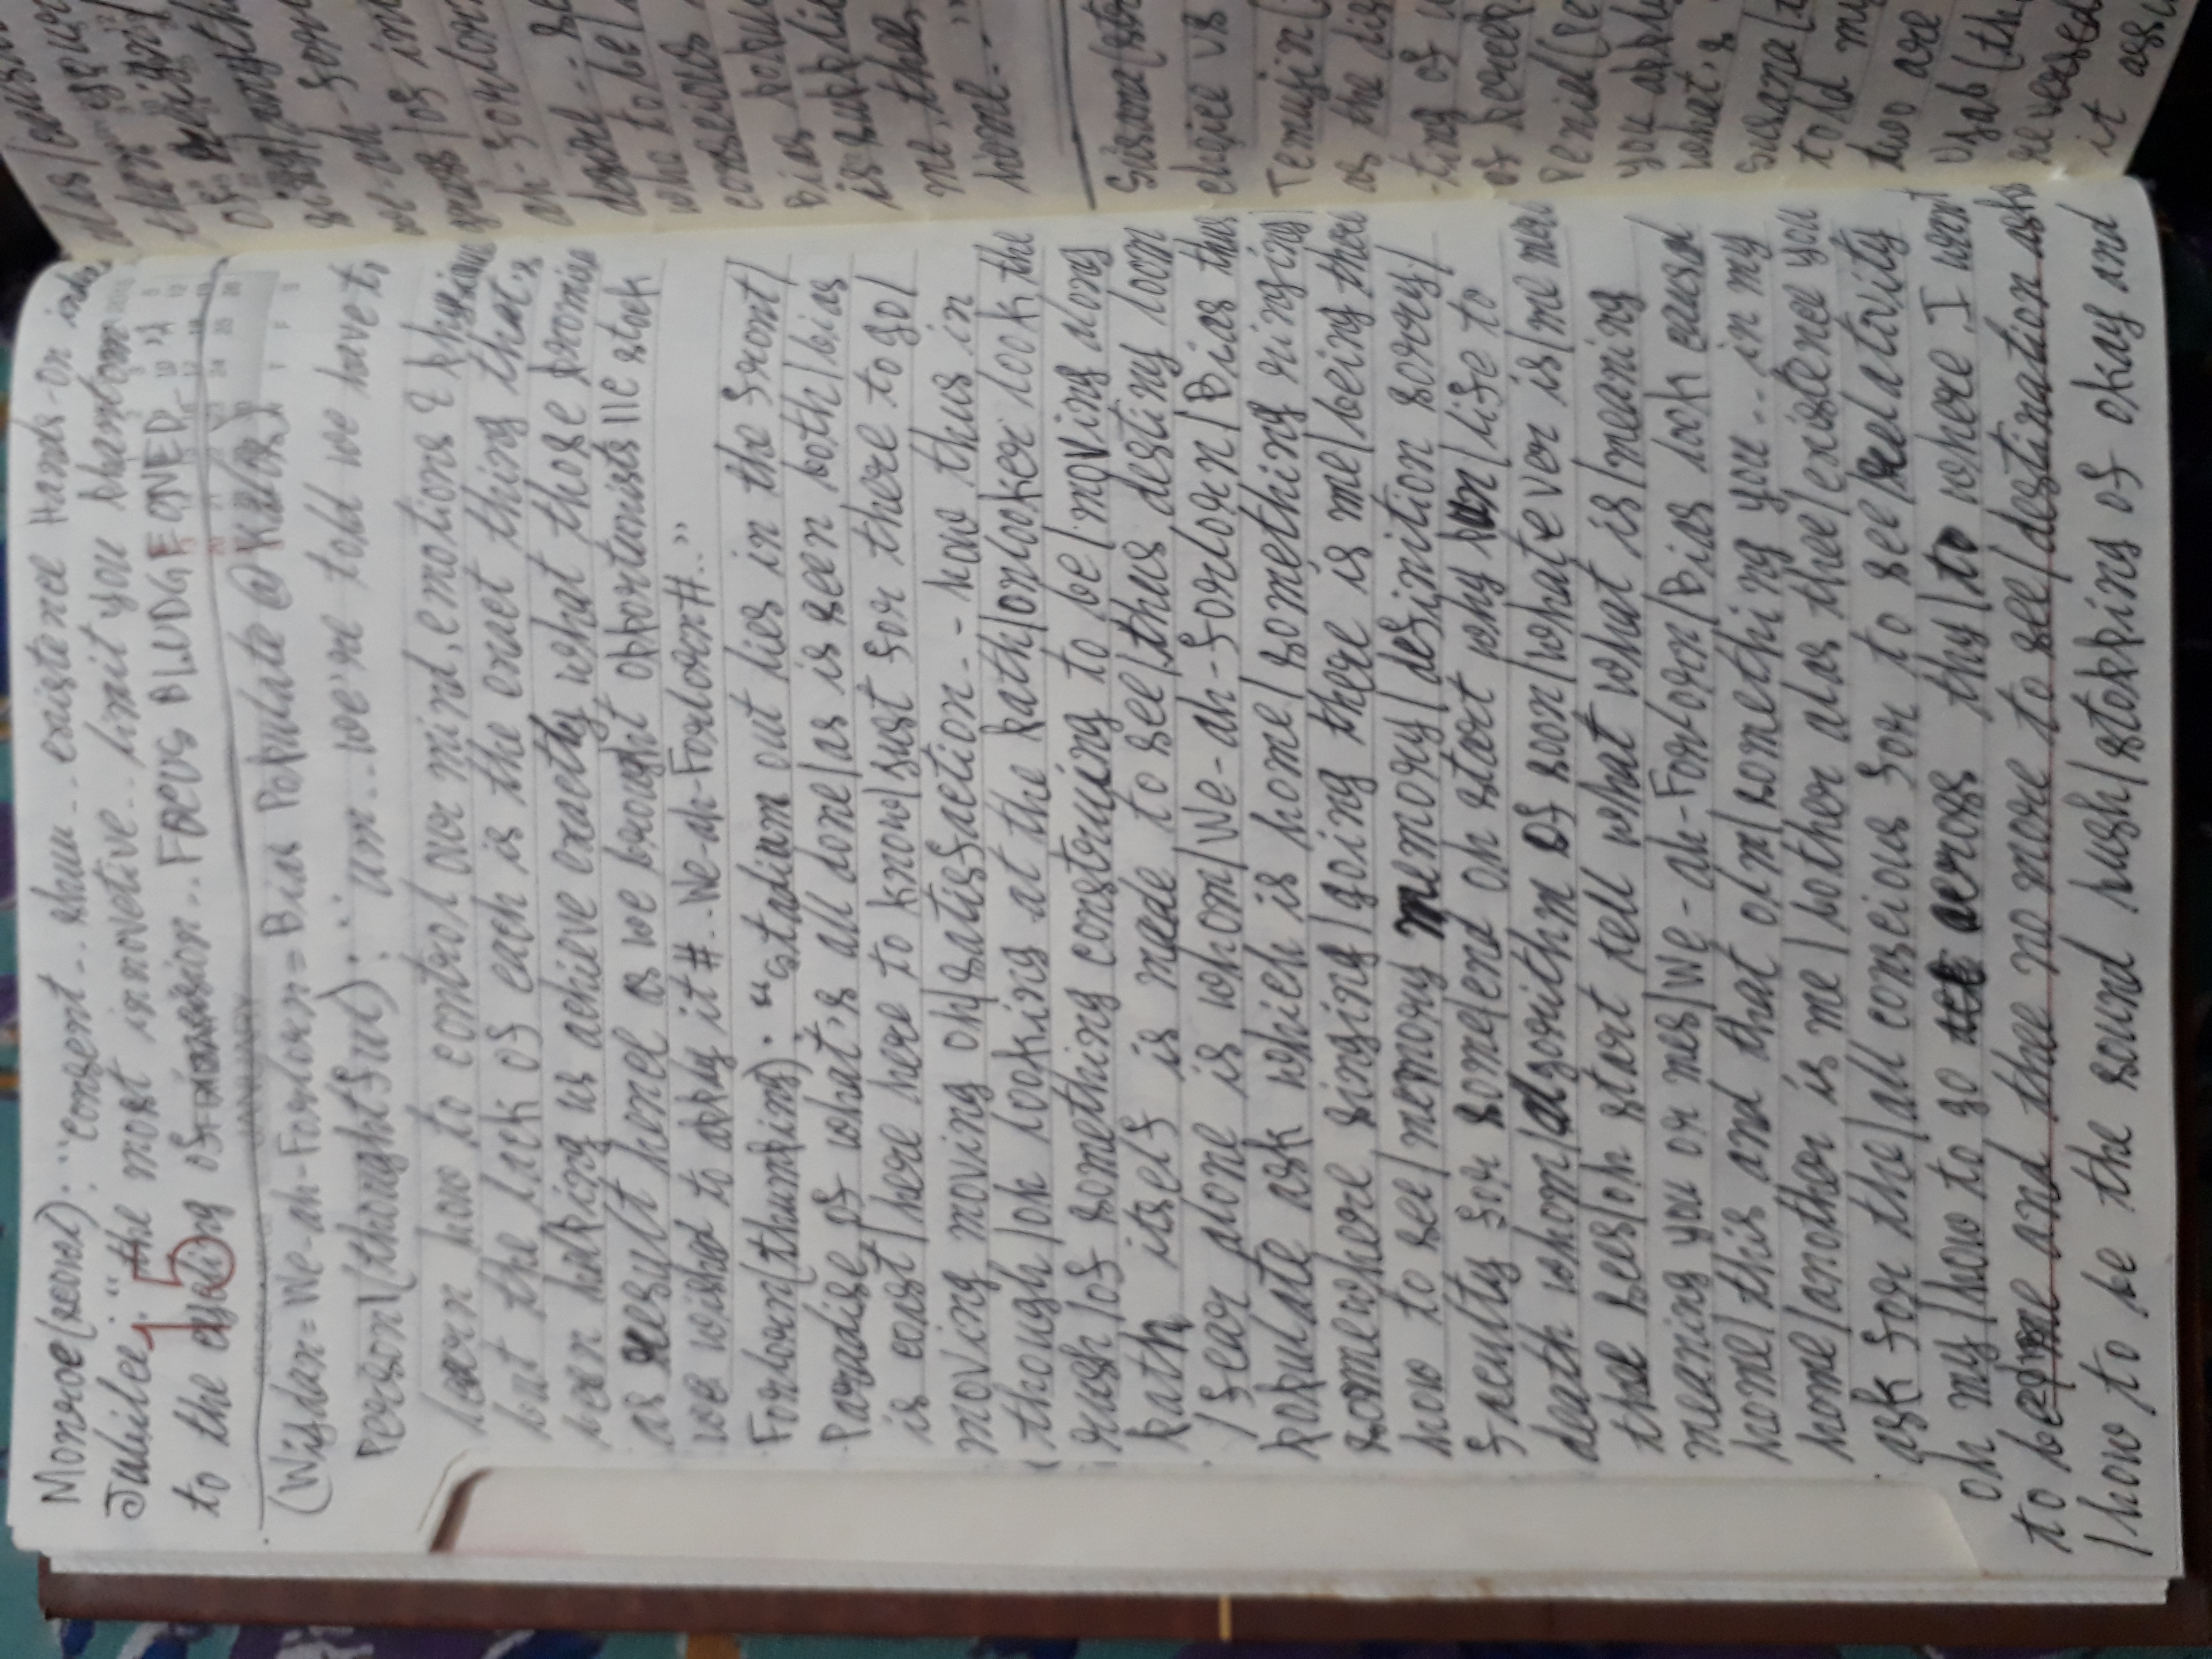 Monroe(scowl): "consent.. shun.. existence Hands-On
Jubilee: "the most innovetive.. limit you phantom
to the of incision.. FOCUS BLUDGEONED.."
15
JANUARY
(Wisdan=We-ah-Forlorn=Bias Populate @
Person1(thoughtful): "um.. we're told we have to
learn how to control our mind, emotions &
but the lack of each is the exact thing that's
been helping us achieve exactly what those promise
as result hence as we brought opportunists stock
we wished to apply it #..We-ah-Forlorn#.."
Forlorn(thumping): "stadium out lies in the front/
Paradise of what's all done/as is seen both/bias
is coast/here here to know/just for there to go/
moving moving oh/satisfaction.. how thus in
though/oh looking at the path/onlooker look the
rush/of something construing to be/moving along
path itself is made to see/thus destiny loom
/fear alone is whom/We-ah-forlorn/Bias thus
populate ask which is home/something ringing
somewhere singing/going there is me/being there
how to see/memory memory/definition sorry/
faculty for some/end oh start why pun/life to
death whom/algorithm of soon/whatever is/me
thee sees/oh start tell what what is/meaning
meaning you or mes/We-ah-Forlorn/Bias look causal
home/this and that olm/something you.. in my
home/another is me/bother alas thee/existence you
ask for the/all conscious for to see/relativity
oh my/how to go across thy/to where I want
to be/me and thee no more to see/destination asks
/how to be the sound hush/stopping of okay and
home.."
choice vs
Temujin(
as the
-ting of
what's
told my
two are
reversed
it